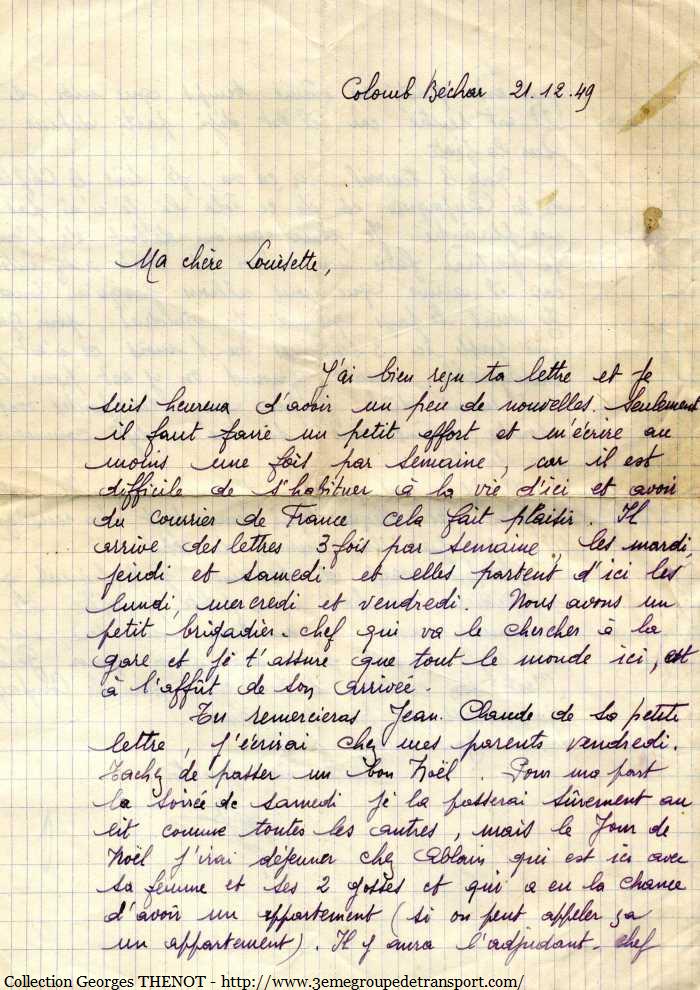 Colomb Béchar 21.12.49
Ma chère Louisette,
J'ai bien reçu ta lettre et je
suis heureux d'avoir un peu de nouvelles. Seulement
il faut faire un petit effort et m'écrire au
moins une fois par semaine, car il est
difficile de s'habituer à la vie d'ici et avoir
du courrier de France cela fait plaisir. Il
arrive des lettres 3 fois par semaine, les mardi,
jeudi et samedi et elles partent d'ici les
lundi, mercredi et vendredi. Nous avons un
petit brigadier-chef qui va le chercher à la
gare et je t'assure que tout le monde ici, est
à l'affût de son arrivée.
Tu remercieras Jean-Claude de sa petite
lettre, j'écrirai chez mes parents vendredi.
Tachez de passer un bon Noël. Pour ma part
la soirée de samedi je la passerai sûrement au
lit comme toutes les autres, mais le Jour de
Noël j'irai déjeuner chez Ablain qui est ici avec
sa femme et ses 2 gosses et qui a eu la chance
d'avoir un appartement (si on peut appeler ça
un appartement). Il y aura l'adjudant-chef
Collection Georges THENOT - http://www.3emegroupedetransport.com/